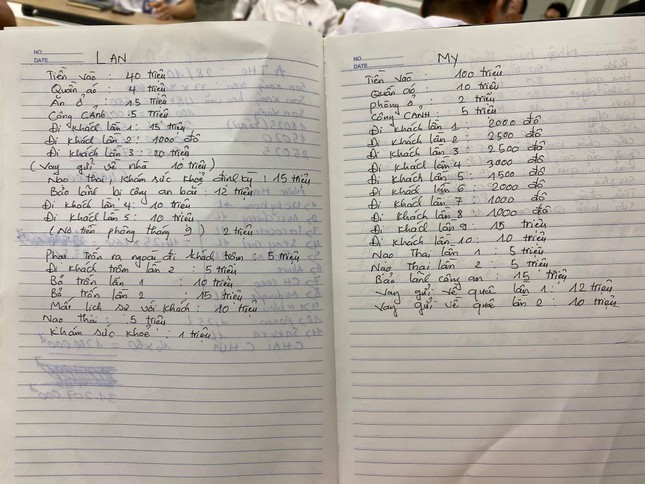 NO.
DATE
LAN
Tiền vào : 40 triệu
Quần áo : 4 triệu
Ăn ở : 15 triệu
Công CẢNH : 5 triệu
Đi khách lần 1 : 15 triệu
Đi khách lần 2 : 1000 đô
Đi khách lần 3 : 20 triệu
( Vay gửi về nhà 10 triệu )
Nạo thai, khám sức khoẻ định kỳ : 15 triệu
Bảo lãnh bị công an bắt : 12 triệu
Đi khách lần 4 : 10 triệu
Đi khách lần 5 : 10 triệu
( Nợ tiền phòng tháng 9 ) 2 triệu
Phạt trốn ra ngoài đi khách trộm : 5 triệu
Đi khách trộm lần 2 : 5 triệu
Bỏ trốn lần 1 : 10 triệu
Bỏ trốn lần 2 : 15 triệu
Mất lịch sự với khách : 10 triệu
Nạo thai : 5 triệu
Khám sức khoẻ : 1 triệu
NO.
DATE
MY
Tiền vào : 100 triệu
Quần áo : 10 triệu
phòng ở : 2 triệu
Công CẢNH : 5 triệu
Đi khách lần 1 : 2000 đô
Đi khách lần 2 : 2500 đô
Đi khách lần 3 : 2500 đô
Đi khách lần 4 3000 đô
Đi khách lần 5 : 1500 đô
Đi khách lần 6 : 2000 đô
Đi khách lần 7 : 1000 đô
Đi khách lần 8 1000 đô
Đi khách lần 9 : 15 triệu
Đi khách lần 10 : 10 triệu
Nạo Thai lần 1 : 5 triệu
Nạo Thai lần 2 : 5 triệu
Bảo lãnh công an : 15 triệu
Vay gửi về quê lần 1 : 12 triệu
Vay gửi về quê lần 2 : 10 triệu